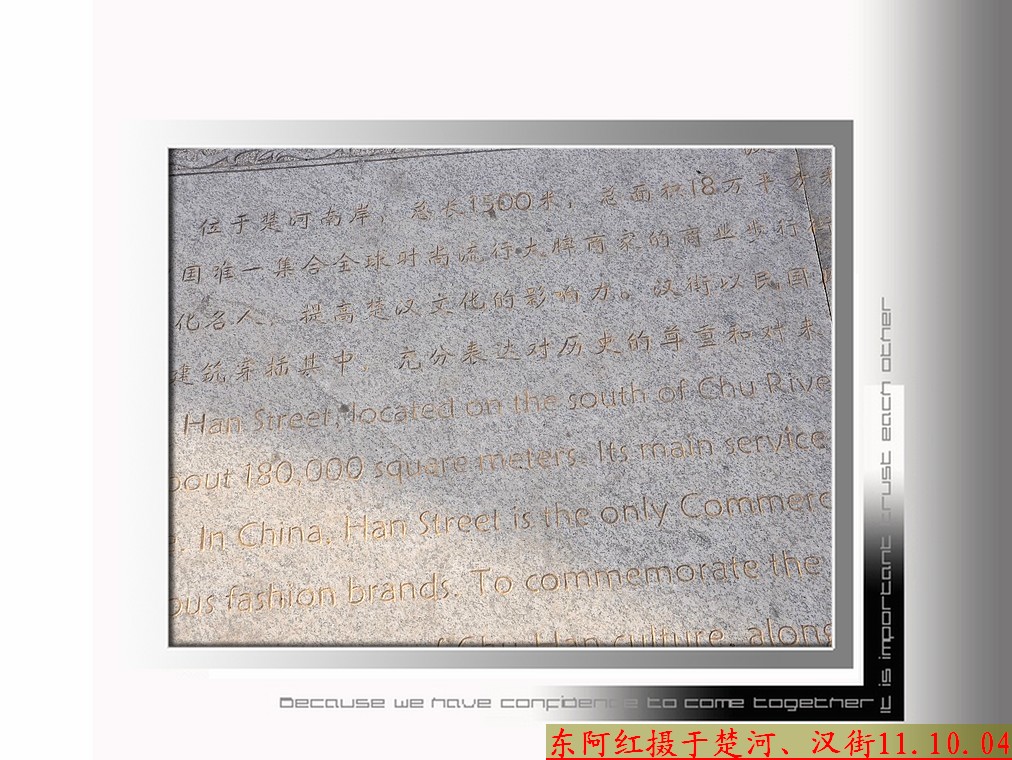 位于楚河南岸，总长1500米，总面积18万平方米
国唯一集合全球时尚流行大牌商家的商业步行街
化名人，提高楚汉文化的影响力。汉街以民国
建筑穿插其中，充分表达对历史的尊重和对未
Han Street, located on the south of Chu Rive
bout 180,000 square meters. Its main service
. In China, Han Street is the only Commerc
ous fashion brands. To commemorate the
of Chu Han culture, along
It is important trust each other
Because we have confidence to come together
东阿红摄于楚河、汉街11.10.04